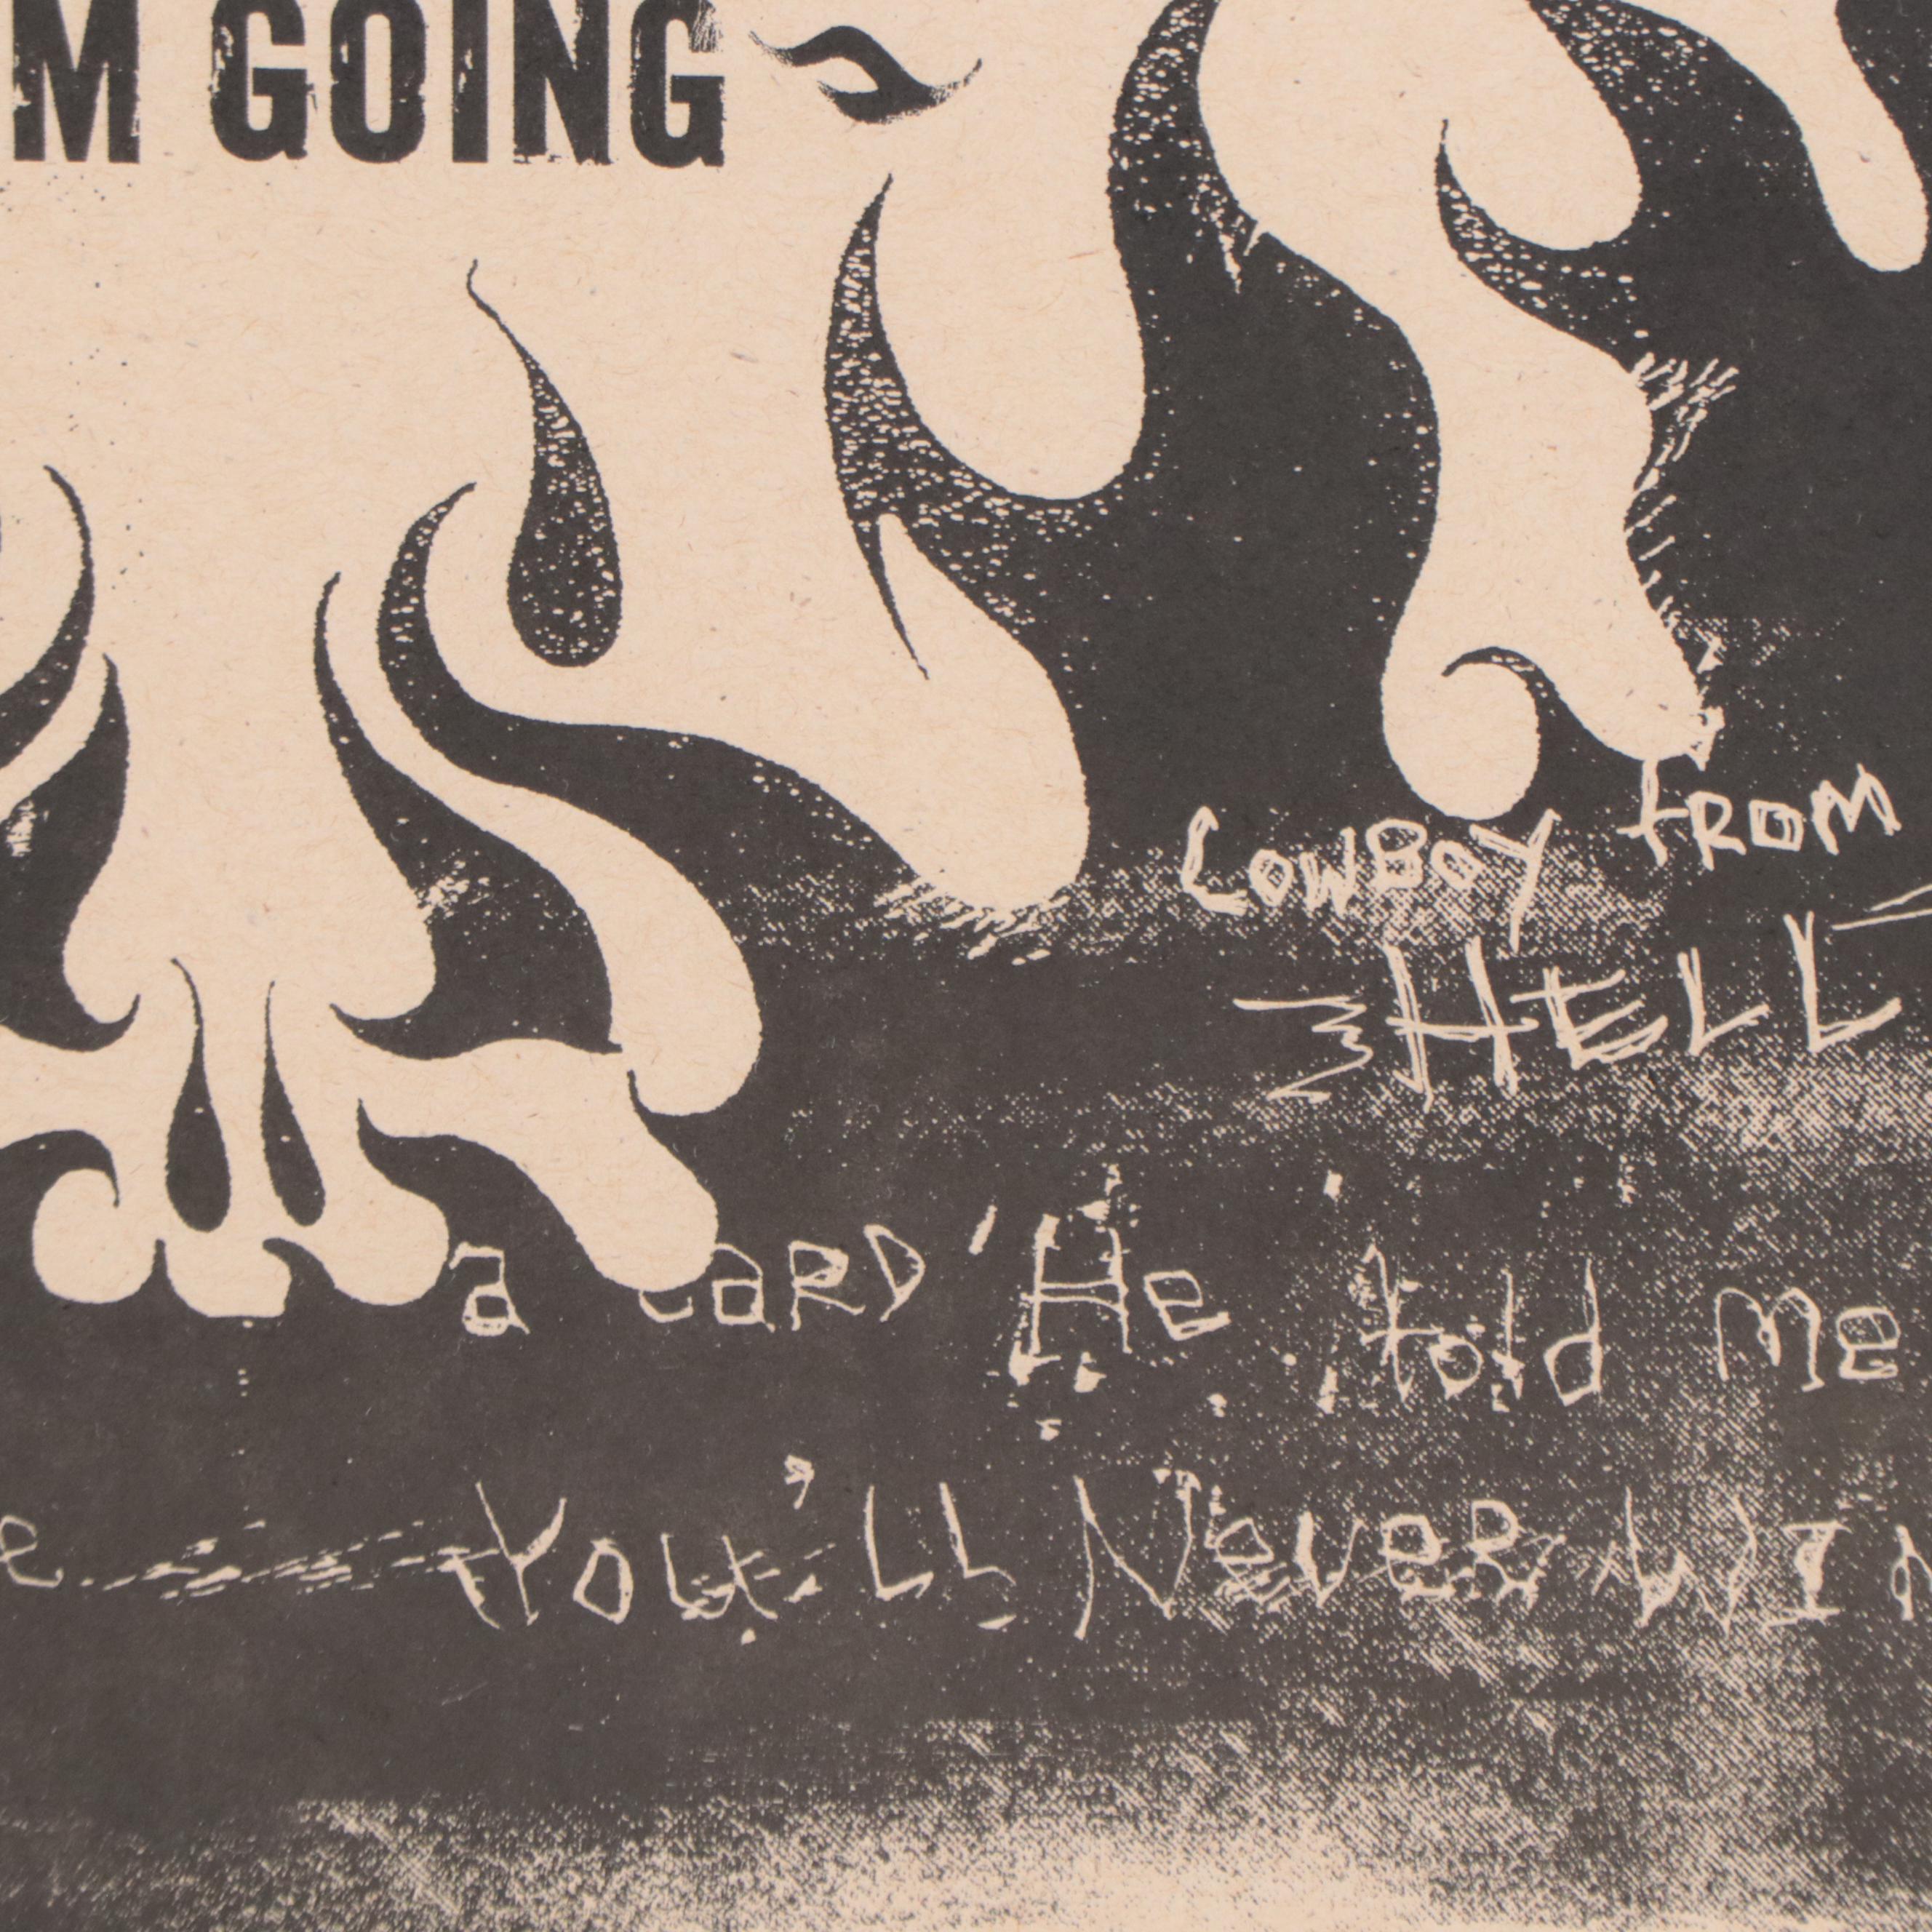 M GOING
COWBOY FROM
HELL
a CARD 'He told me
e You'll Never WIn